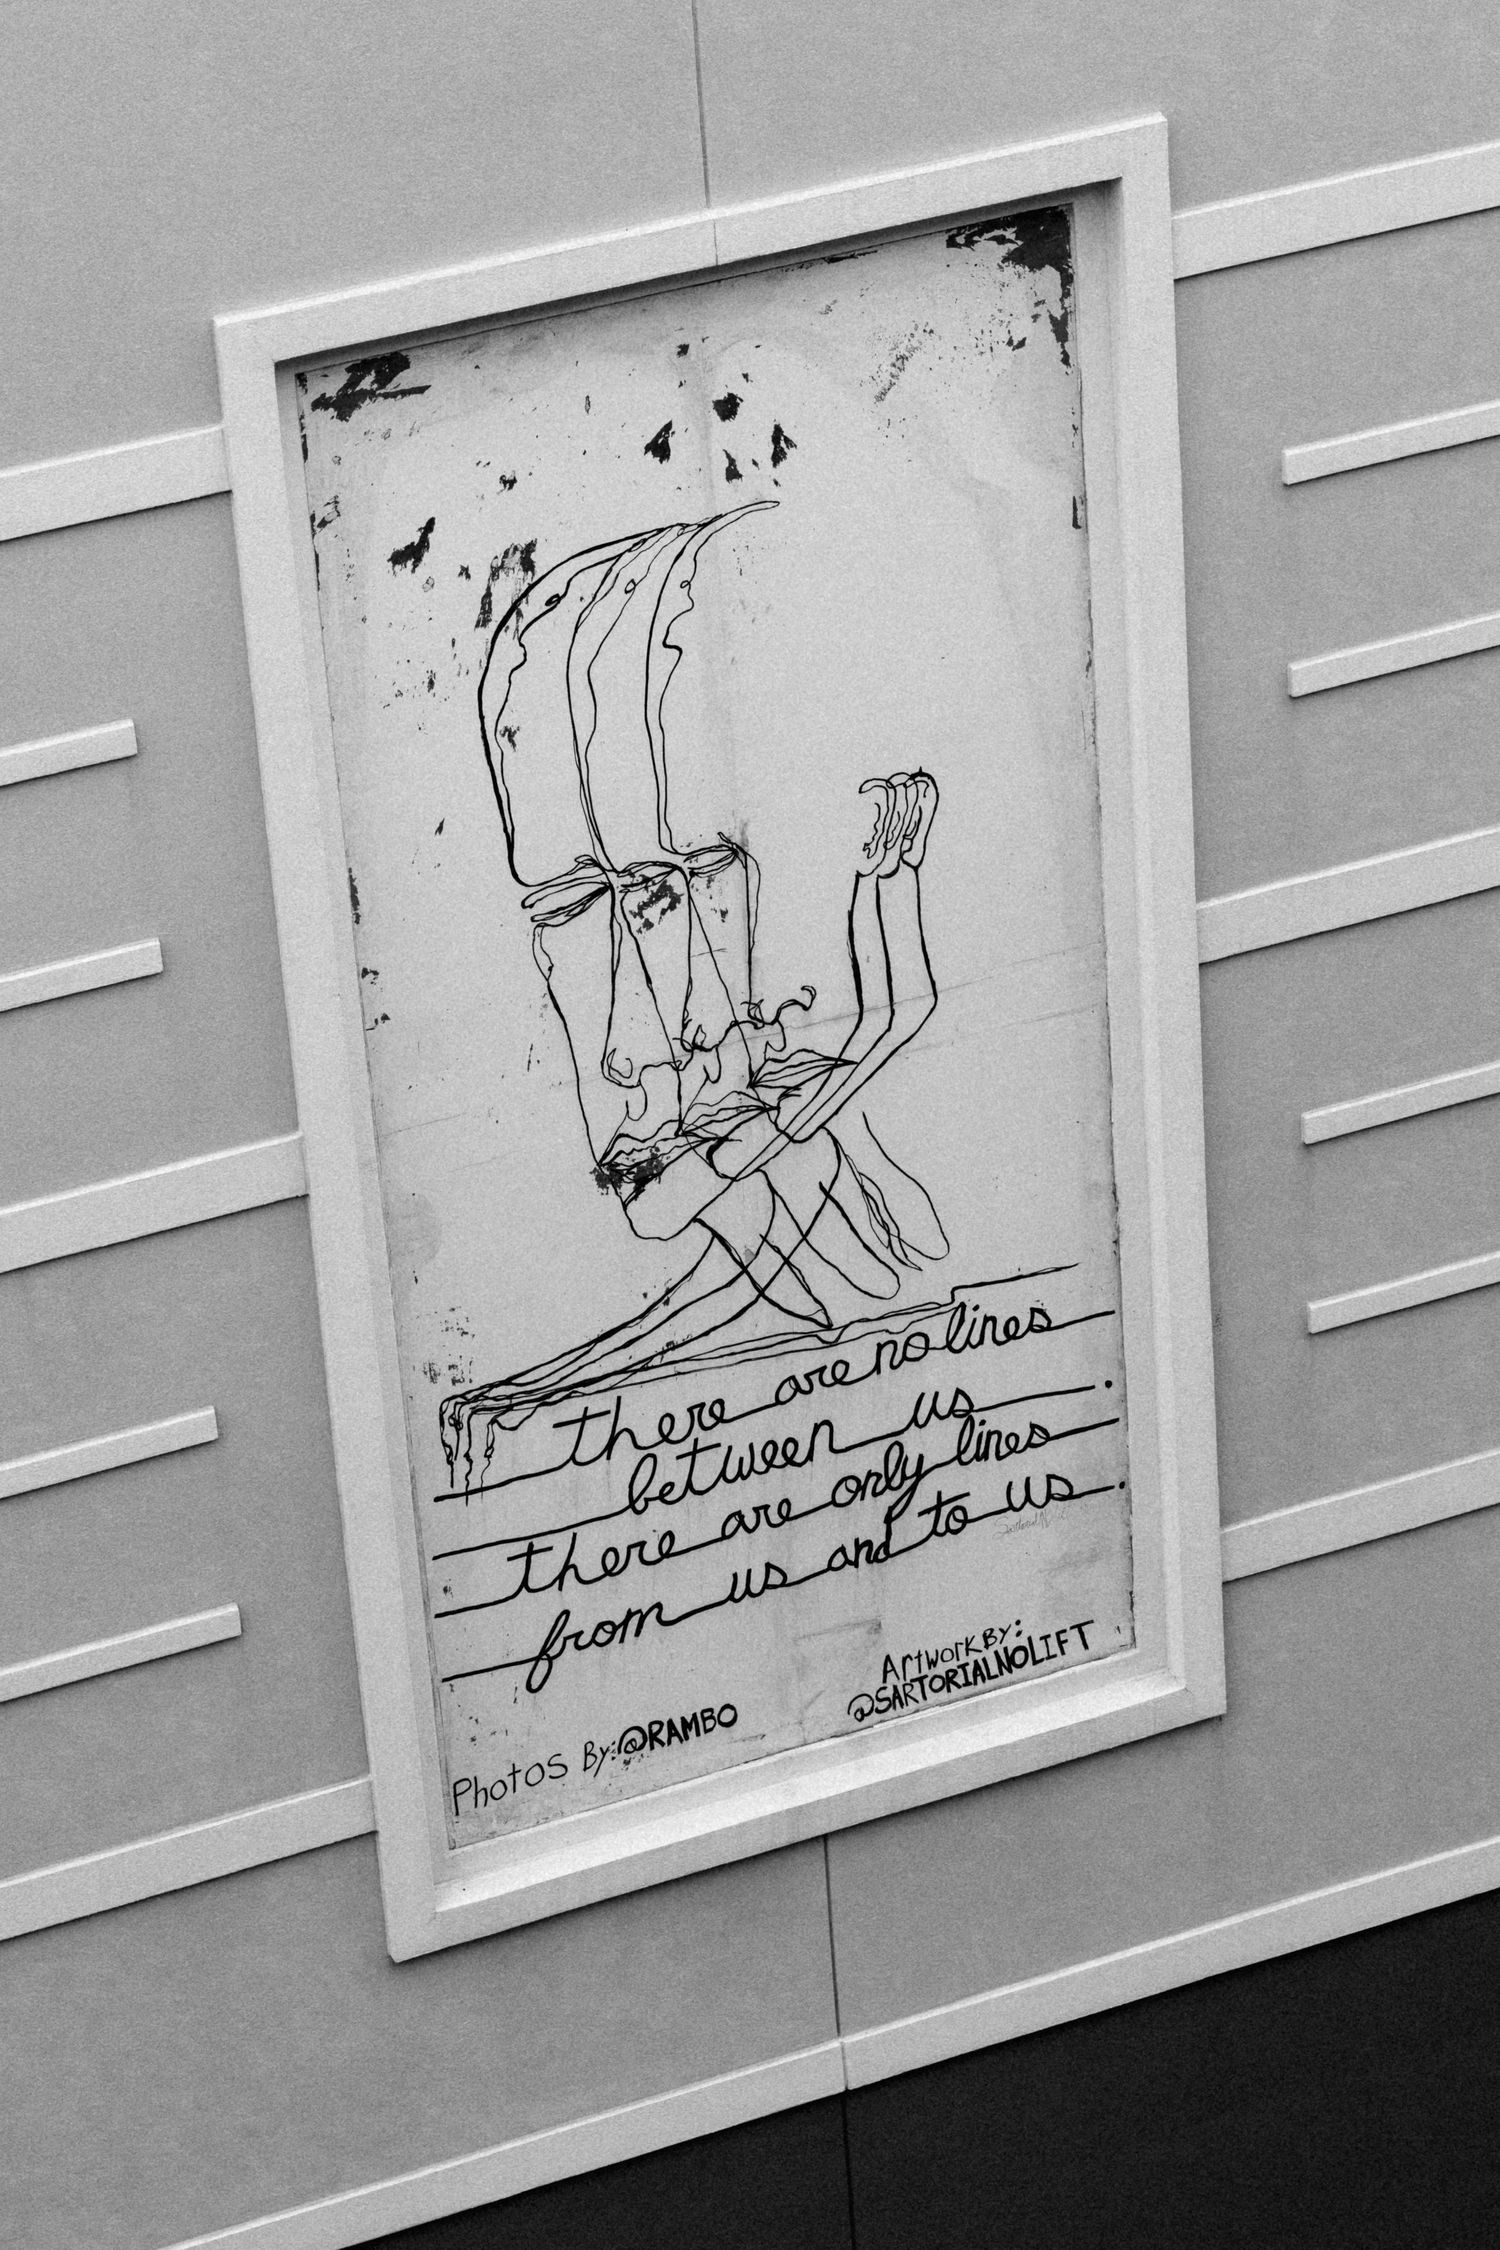 there are no lines
between us.
there are only lines
from us and to us.
Artwork By:
@SARTORIALNOLIFT
Photos By: @RAMBO